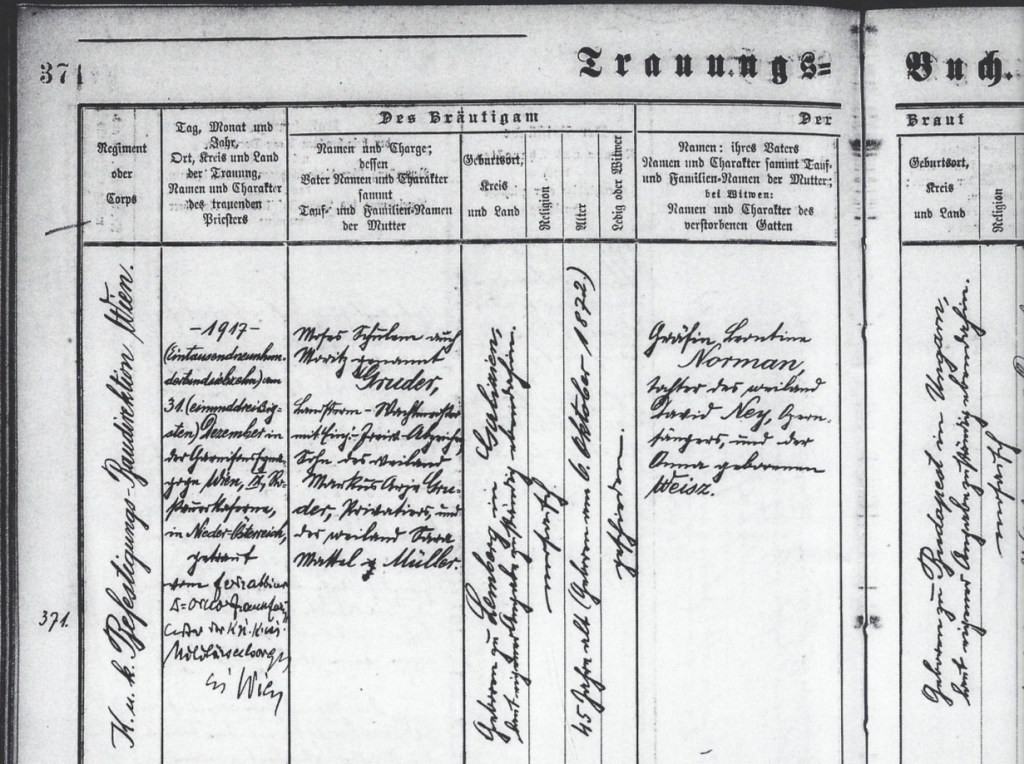 371
Trauungs=Buch.
Regiment
oder
Corps
Tag, Monat und
Jahr,
Ort, Kreis und Land
der Trauung,
Namen und Charakter
des trauenden
Priesters
Des Bräutigam
Namen und Charge;
dessen
Vater Namen und Charakter
sammt
Tauf- und Familien-Namen
der Mutter
Geburtsort,
Kreis
und Land
Religion
Alter
Ledig oder Witwer
Der Braut
Namen: ihres Vaters
Namen und Charakter sammt Tauf-
und Familien-Namen der Mutter;
bei Witwen:
Namen und Charakter des
verstorbenen Gatten
Geburtsort,
Kreis
und Land
Religion
371.
K. u. k. Befestigungs-Baudirektion Wien.
-1917-
(Eintausendneunhun-
dertundsiebzehn) am
31. (einunddreißig-
sten) Dezember in
der Garnisonssyna-
goge Wien,
in Nieder-Österreich,
getraut
vom
der k. u. k.
Militärseelsorge
in Wien
Moses Schulem auch
Moritz genannt
Gruder,
Landsturm-Wachtmeister
mit Einj.-Freiw. Abzeichen,
Sohn des weiland
Markus Arje Gru-
der, Privatiers, und
der weiland Sara
Mattel g. Müller.
Geboren zu Lemberg in Galizien:
laut eigener Angabe zuständig ebendahin.
mosaisch
45 Jahre alt (Geboren am 6. Oktober 1872.)
geschieden.
Gräfin Leontine
Norman,
Tochter des weiland
David Ney, Opern-
sängers, und der
Anna geborenen
Weisz.
Geboren zu Budapest in Ungarn:
laut eigener Angabe zuständig ebendahin.
mosaisch